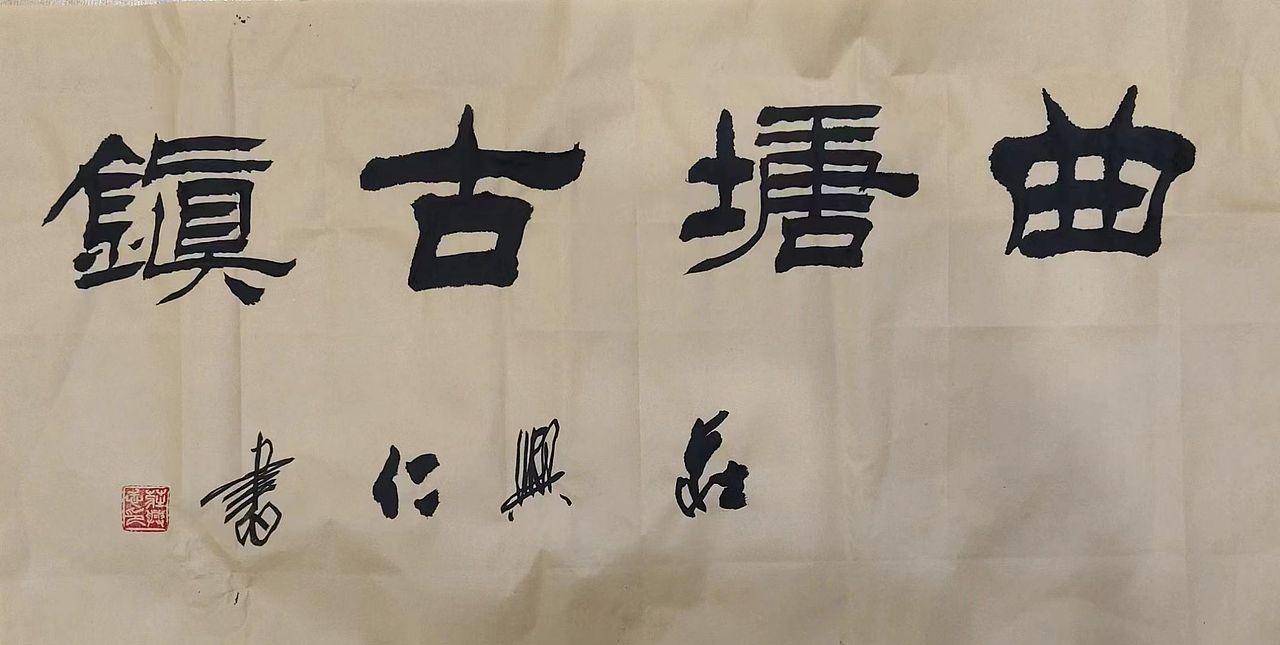 曲塘古鎮
莊興仁書